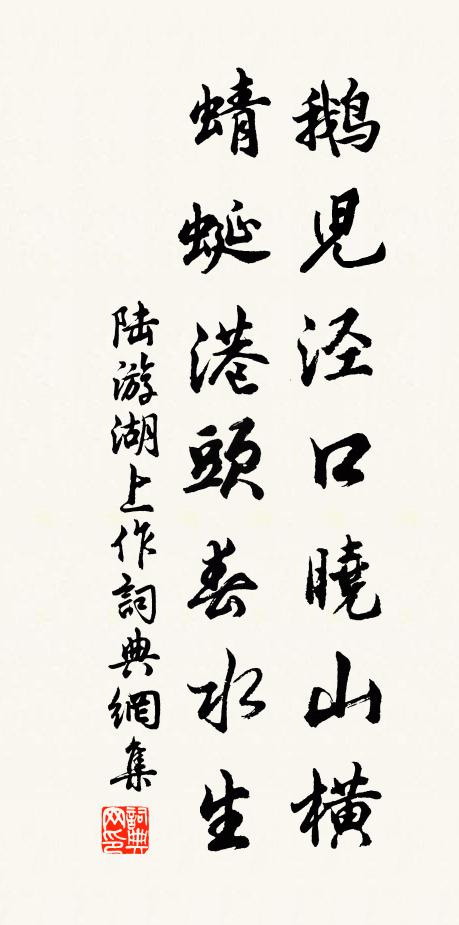 鵝兒涇口曉山橫
蜻蜓港頭春水生
陸游湖上作詞典網集
詞典网印